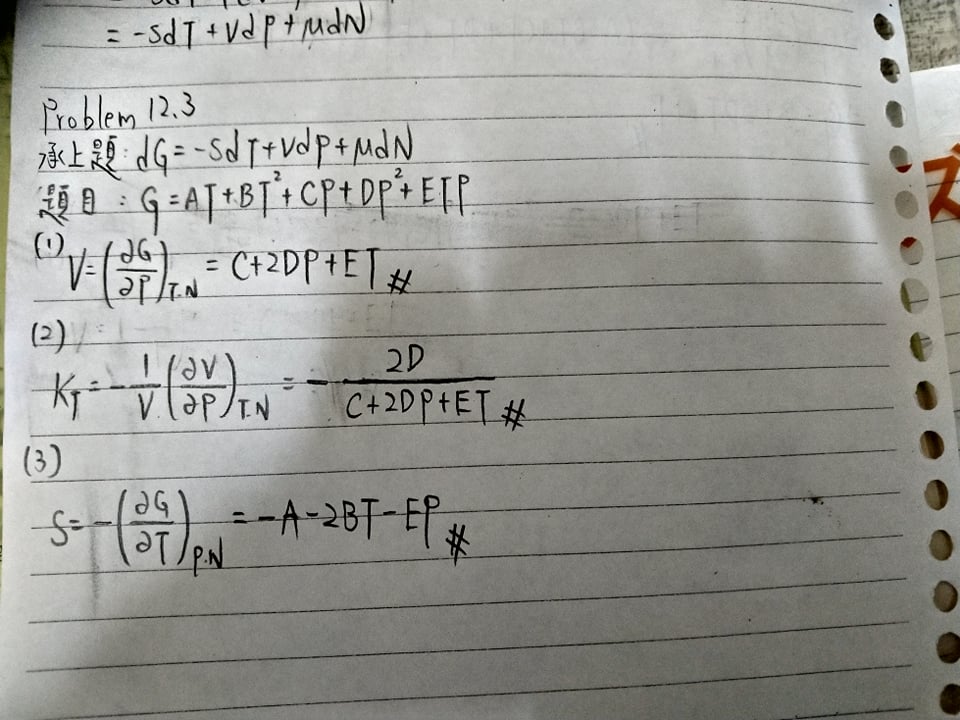 = -SdT + VdP + μdN
Problem 12.3
承上題: dG = -SdT + VdP + μdN
題目: G = AT + BT² + CP + DP² + ETP
(1)
V = (∂G/∂P)T.N = C+2DP+ET #
(2)
KT = -1/V (∂V/∂P)T.N = - 2D/(C+2DP+ET) #
(3)
S = -(∂G/∂T)P.N = -A-2BT-EP #